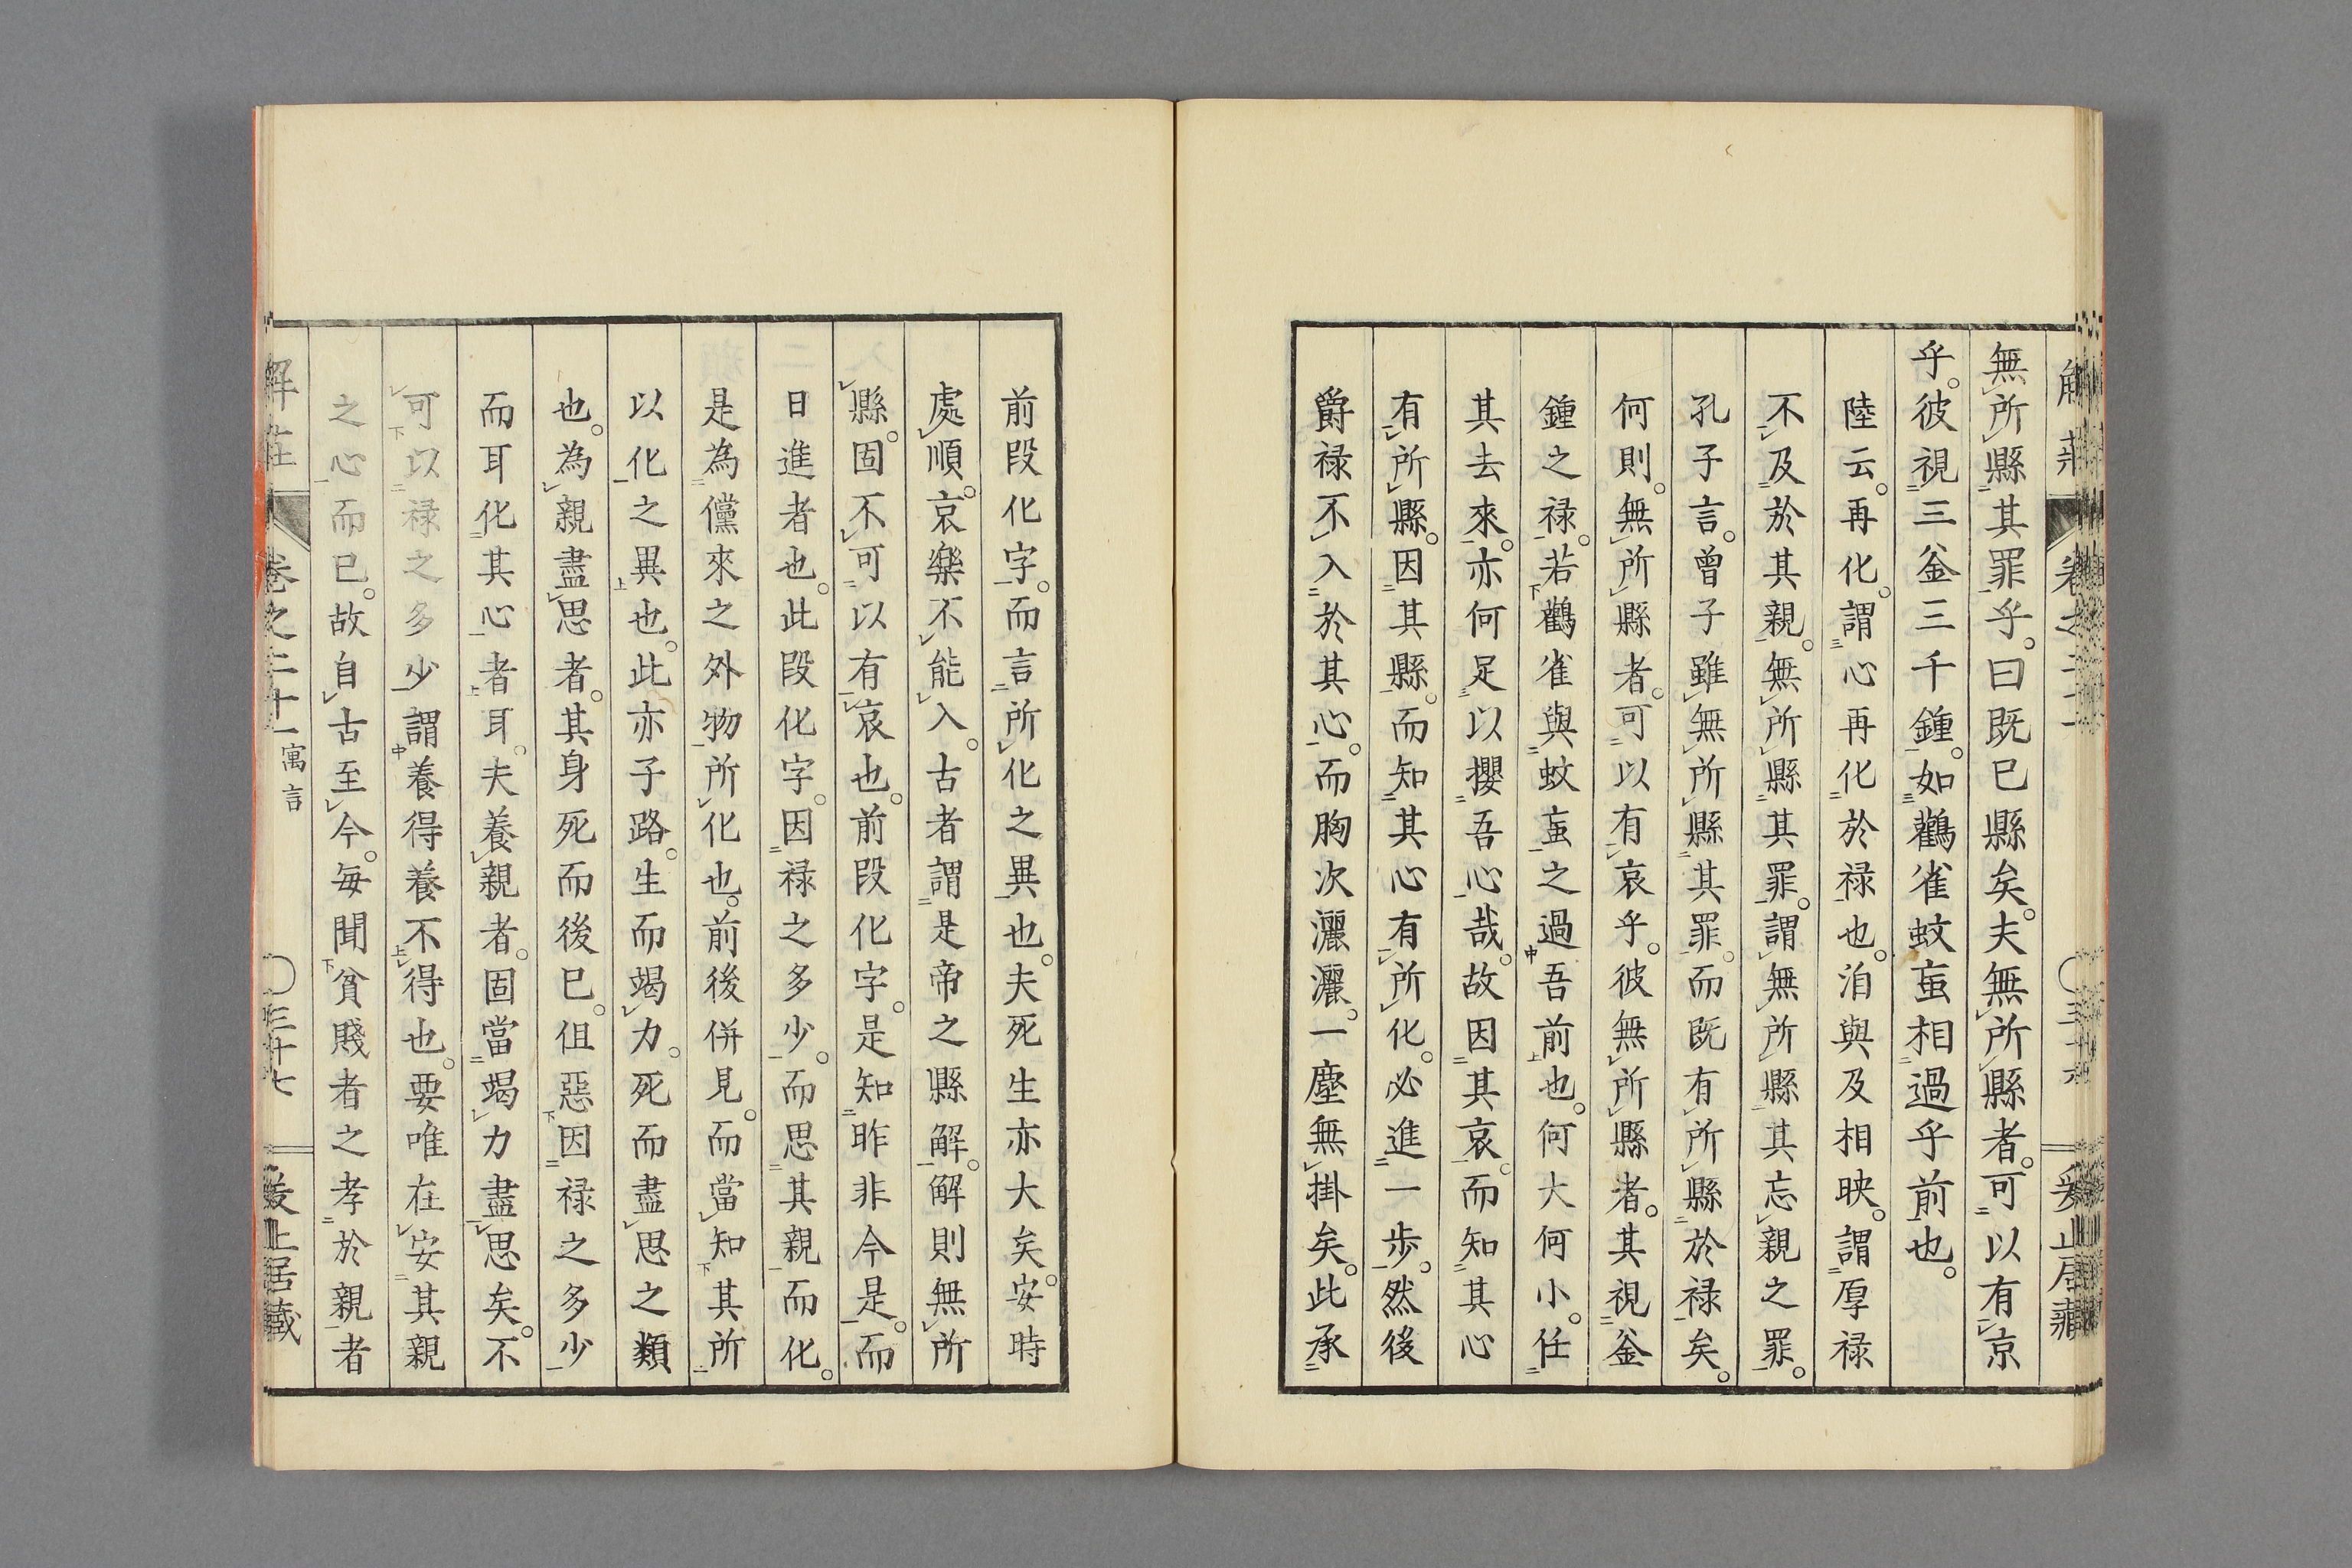 無所縣其罪乎。曰既已縣矣。夫無所縣者。可以有哀
乎。彼視三釜三千鍾。如鸛雀蚊䖟相過乎前也。
陸云。再化。謂心再化於禄也。洎與及相映。謂厚禄
不及於其親。無所縣其罪。謂無所縣其忘親之罪。
孔子言。曾子雖無所縣其罪。而既有所縣於禄矣。
何則。無所縣者。可以有哀乎。彼無所縣者。其視釜
鍾之禄。若鸛雀與蚊䖟之過吾前也。何大何小。任
其去來。亦何足以攖吾心哉。故因其哀。而知其心
有所縣。因其縣。而知其心有所化。必進一步。然後
爵禄不入於其心。而胸次灑灑。一塵無掛矣。此承
前段化字。而言所化之異也。夫死生亦大矣。安時
處順。哀樂不能入。古者謂是帝之縣解。解則無所
縣。固不可以有哀也。前段化字。是知昨非今是。而
日進者也。此段化字。因禄之多少。而思其親而化。
是為儻來之外物所化也。前後併見。而當知其所
以化之異也。此亦子路。生而竭力。死而盡思之類
也。為親盡思者。其身死而後已。但惡因禄之多少
而耳化其心者耳。夫養親者。固當竭力盡思矣。不
可以禄之多少謂養得養不得也。要唯在安其親
之心而已。故自古至今。每聞貧賤者之孝於親者
解莊 卷之二十一 寓言 〇三十七 爰止居藏